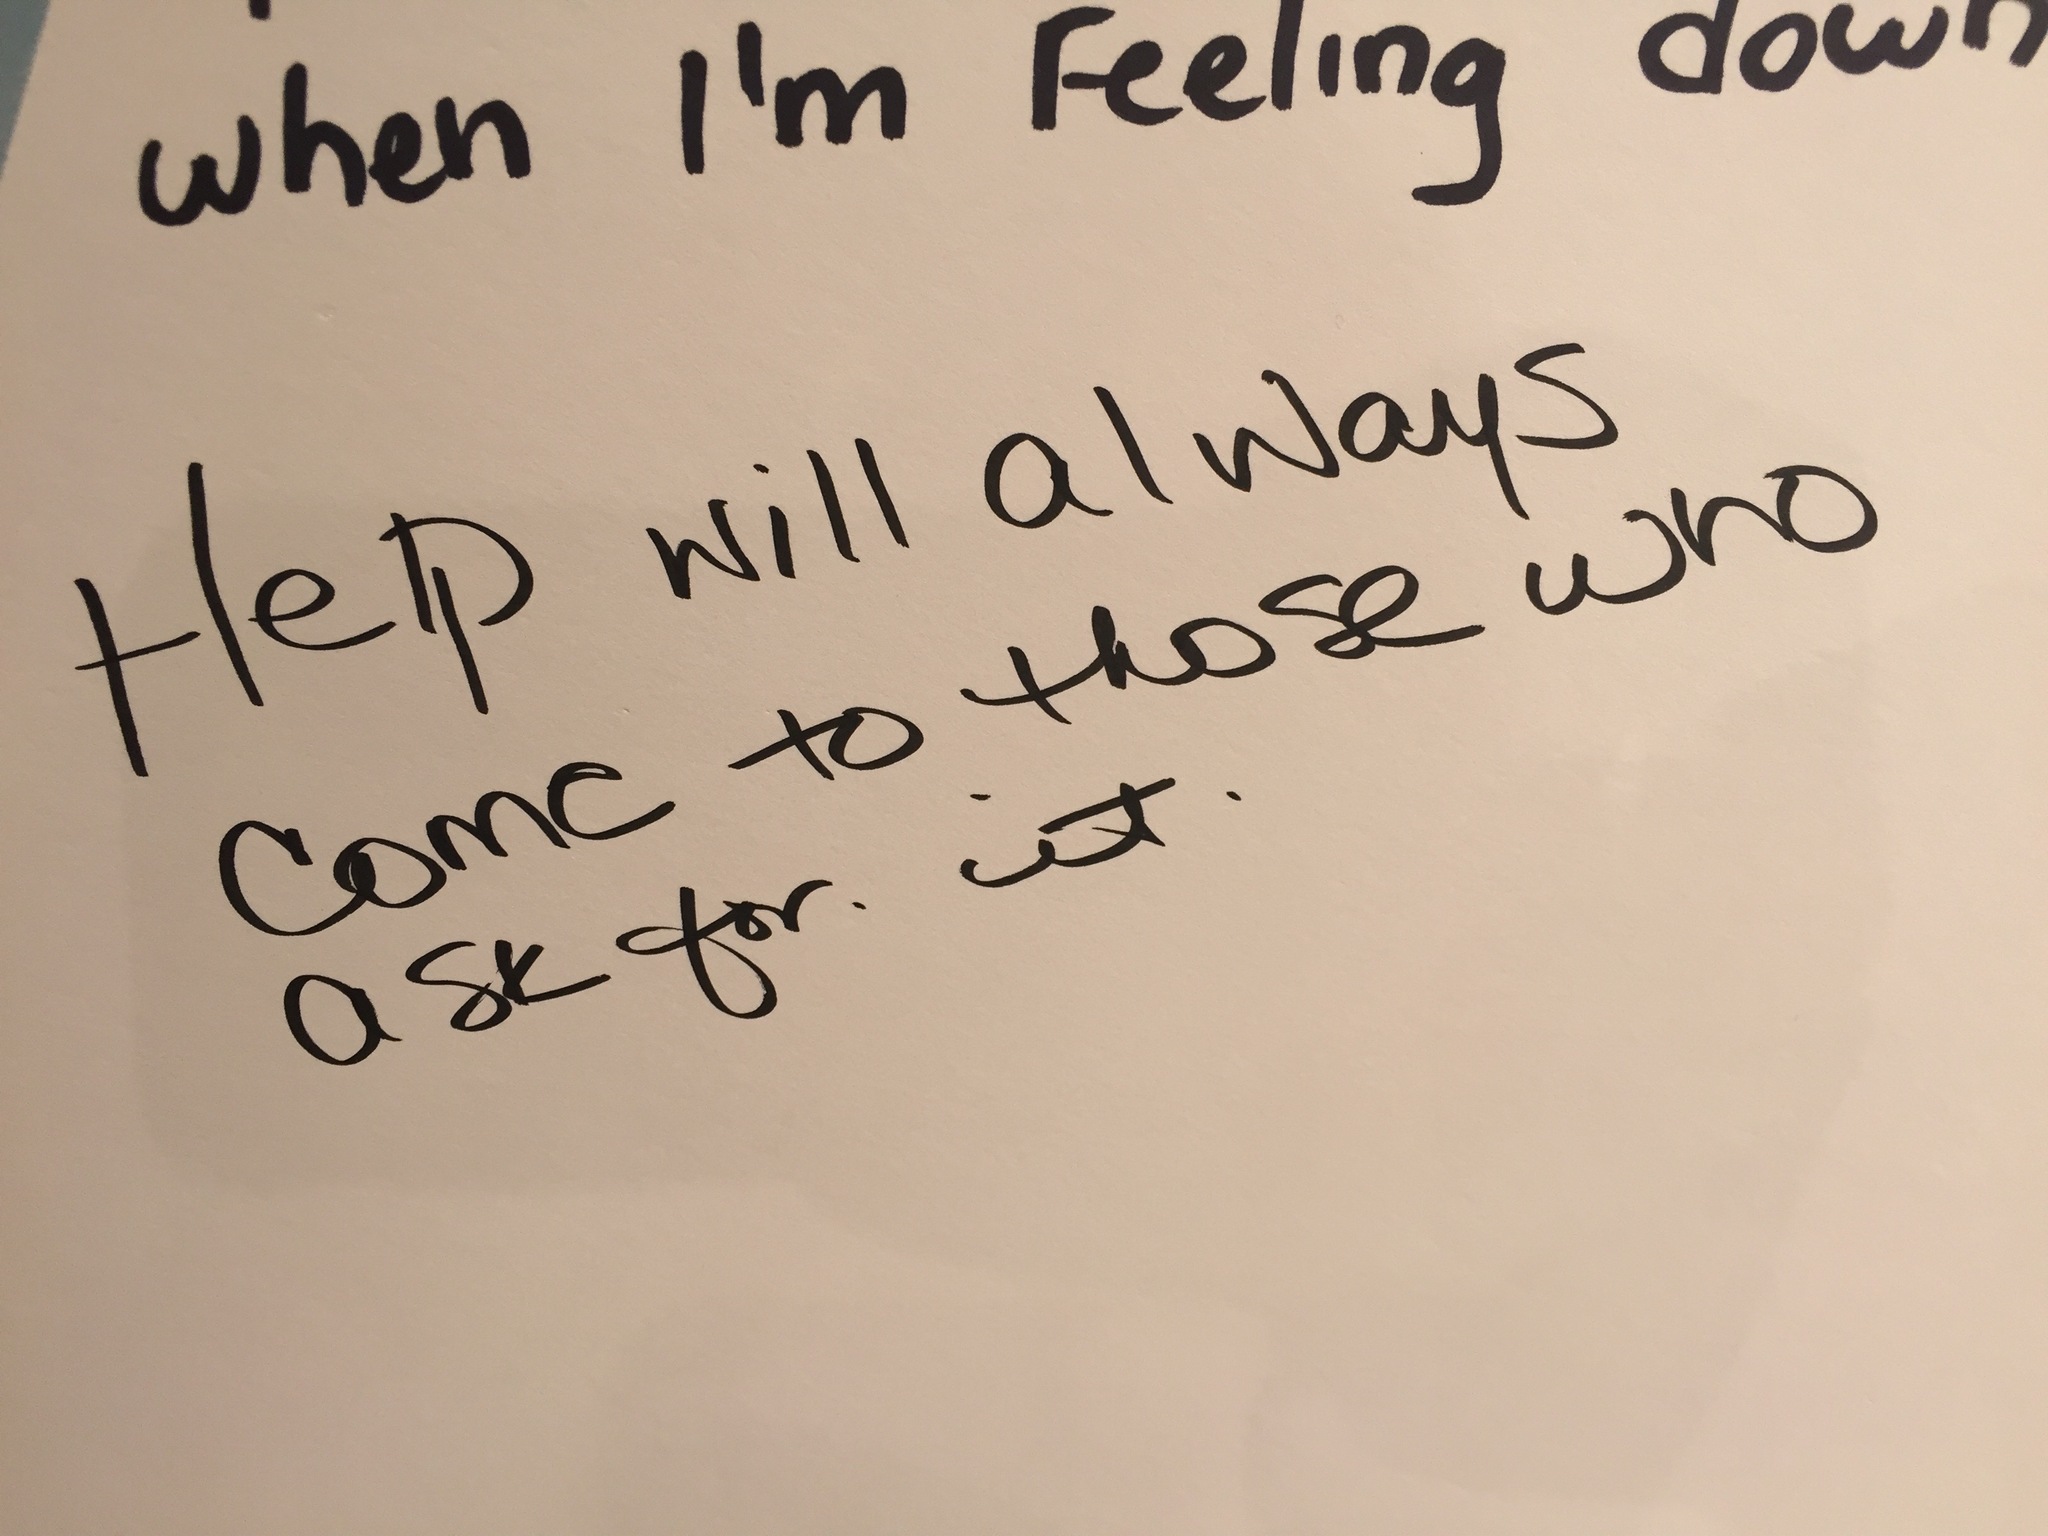 when I'm Feeling down
Help will always
come to those who
ask for. it.